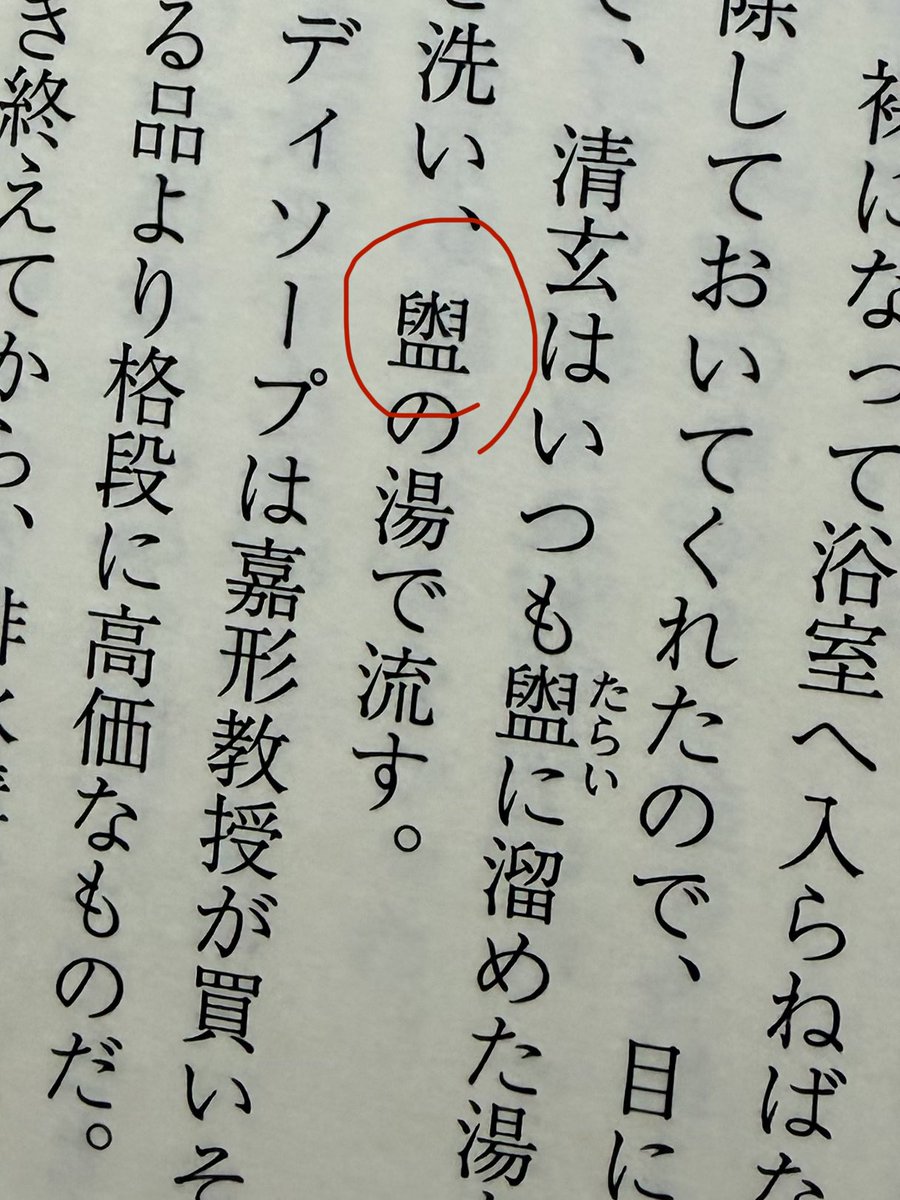 になって浴室へ入らねば
除しておいてくれたので、目に
、清玄はいつも盥に溜めた湯
たらい
洗い、盥の湯で流す。
ディソープは嘉形教授が買いそ
る品より格段に高価なものだ。
き終えてから、